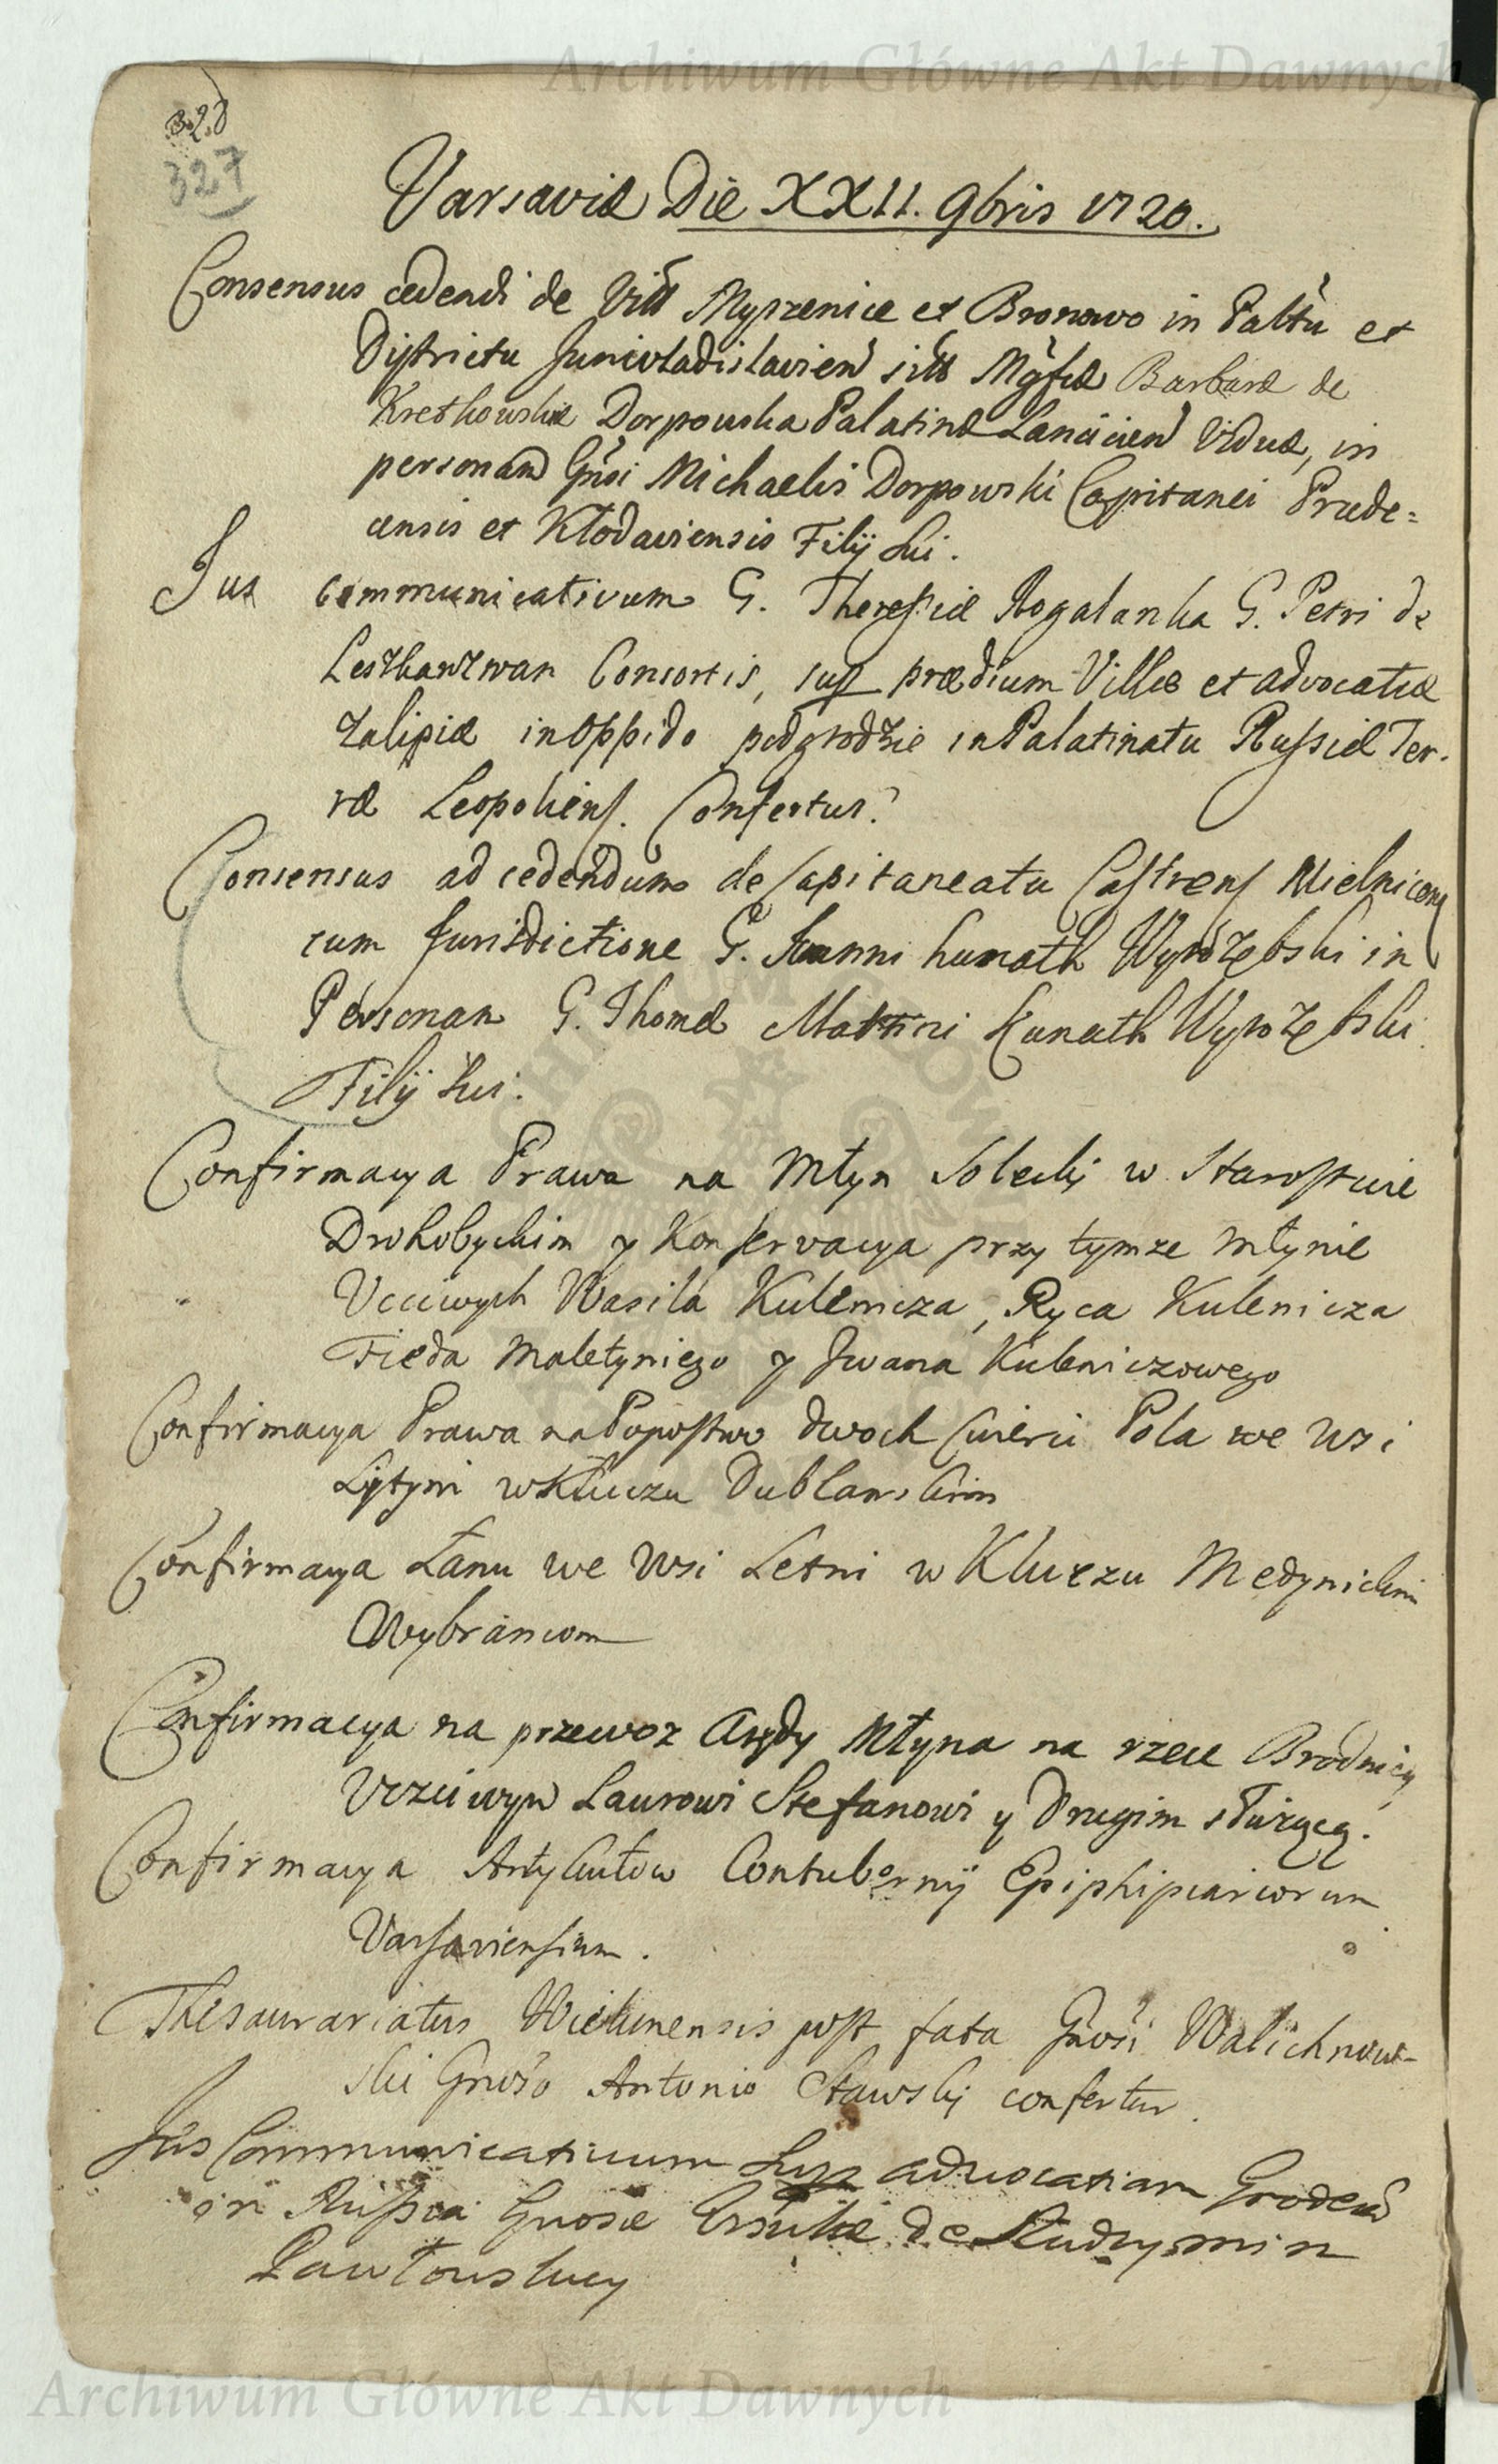 Archiwum Główne Akt Dawnych
328
327
Varsaviæ Die XXII. 9bris 1720.
Consensus cedendi de Vill Myszenice et Bronowo in Paltu et
Districtu Juniwladislavien sitt Mgfcæ Barbaræ de
Kretkowskie Dorpowska Palatinæ Lancicien Viduæ, in
personam Gnsi Michaelis Dorpowski Capitanei Præde=
censis et Kłodaviensis Filij sui.
Jus communicativum G. Theressiæ Rogalanka G. Petri de
Consortis, sup prædium Villæ et advocatiæ
Zalipiæ in Oppido podgrodzie in Palatinatu Russiæ Ter-
ræ Leopoliens. Confertur.
Consensus ad cedendum de Capitaneatu Castrens Mielnicens
cum Jurisdictione G. Joanni kunath Wyrozębski in
Personam G. Thomæ Martini kunath Wyrozębski
Filij sui.
Confirmacya Prawa na Młyn Solecki w Starostwie
Drohobyckim y Konservacya przy tymze młynie
Ucciwych Wasila Kulenicza, Ryca Kulenicza
Fieda Maletyniego y Jwana Kuleniczowego
Confirmacya Prawa na Popostwo dwoch Cwierci Pola we wsi
Lytyni w Kluczu Dublanskim
Confirmacya Łanu we wsi Letni w Kluczu Medynickim
Wybrancom
Confirmacya na przewoz Młyna na rzece Brodnicy
Uczciwym Laurowi Stefanowi y Drugim słurzącą.
Confirmacya Artykułow Contubernij Ephipiariorum
Varsaviensium.
Thesaurariatus Wielunensis post fata Gnosi Walichnow-
ski Gnoso Antonio Stawski confertur.
Jus Communicativum Sup advocatiam Grodeen
in Russia Gnosæ Ursulæ de Rudzymin
Pawłowskiey
Archiwum Główne Akt Dawnych